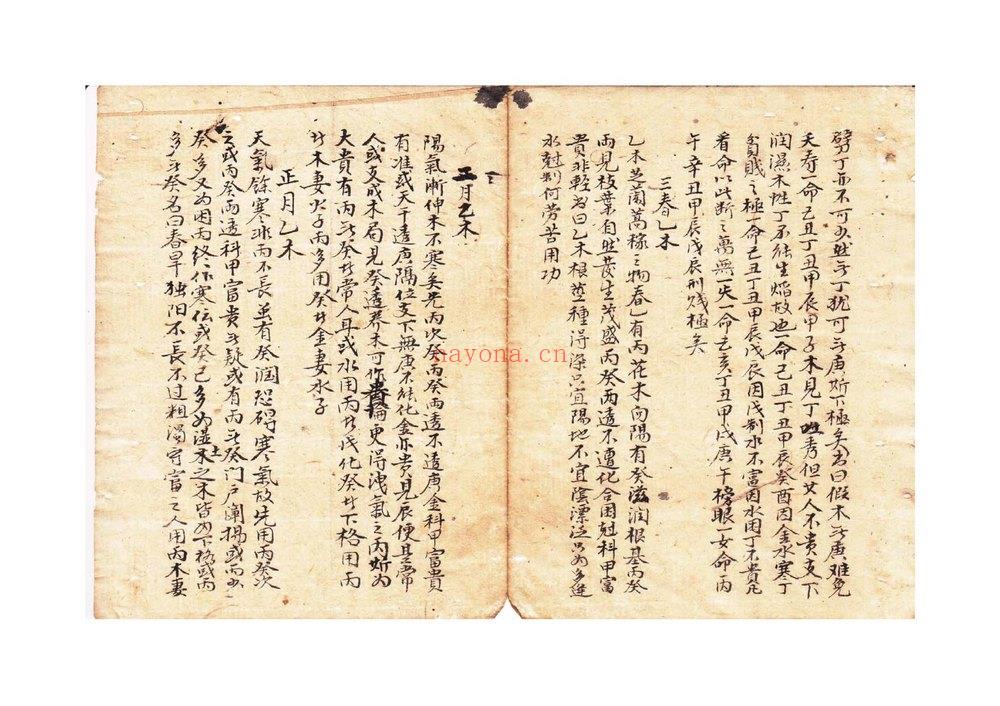 劈丁亦不可少然無丁猶可無庚斯下極矣書曰假木無庚难免
夭寿一命己丑丁丑甲辰甲子木見丁姓秀但女人不貴支下
润濕木性丁不能生焰故也一命己丑丁丑甲辰癸酉因金水寒丁
貧賤之極一命己丑丁丑甲辰戊辰因戊制水不富因水困丁不貴凡
看命以此断之萬無一失一命乙亥丁丑甲戌庚午榜眼一女命丙
午辛丑甲辰戊辰刑贱極矣
三春乙木
乙木芝蘭蒿稼之物春乙有丙花木向陽有癸滋润根基丙癸
兩見枝葉自然長生茂盛丙癸兩透不遭化合困尅科甲富
貴非軽書曰乙木根荄種得深只宜陽地不宜陰漂泛只為多逢
水尅制何劳苦用功
二月乙木
陽氣漸伸木不寒矣先丙次癸丙癸兩透不透庚金科甲富貴
有准或天干透庚隔位支下無庚不能化金亦貴見辰便是常
人或支成木局見癸透养木可作貴論更得洩氣之丙斯为
大貴有丙無癸者常人耳或水用丙者戊化癸者下格用丙
者木妻火子丙多用癸者金妻水子
正月乙木
天氣餘寒非丙不長虽有癸润恐碍寒氣故先用丙癸次
之或丙癸兩透科甲富貴無疑或有丙無癸门戸闡揚或丙少
癸多又为困丙終作寒伝或癸己多为湿土之木皆为下格或丙
多無癸名曰春旱独阳不長不过粗濁守富之人用丙木妻
nayona.cn